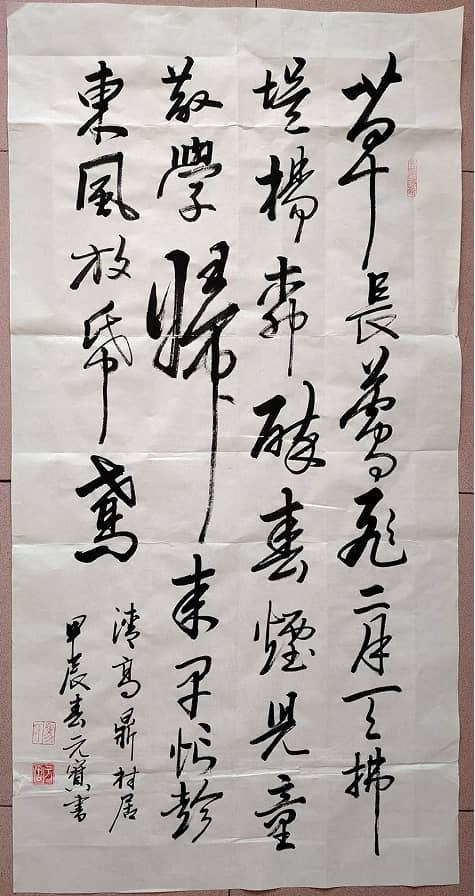 草長鶯飛二月天拂
堤楊柳醉春煙兒童
散學歸來早忙趁
東風放帋鳶
清高鼎村居
甲辰春元寶書